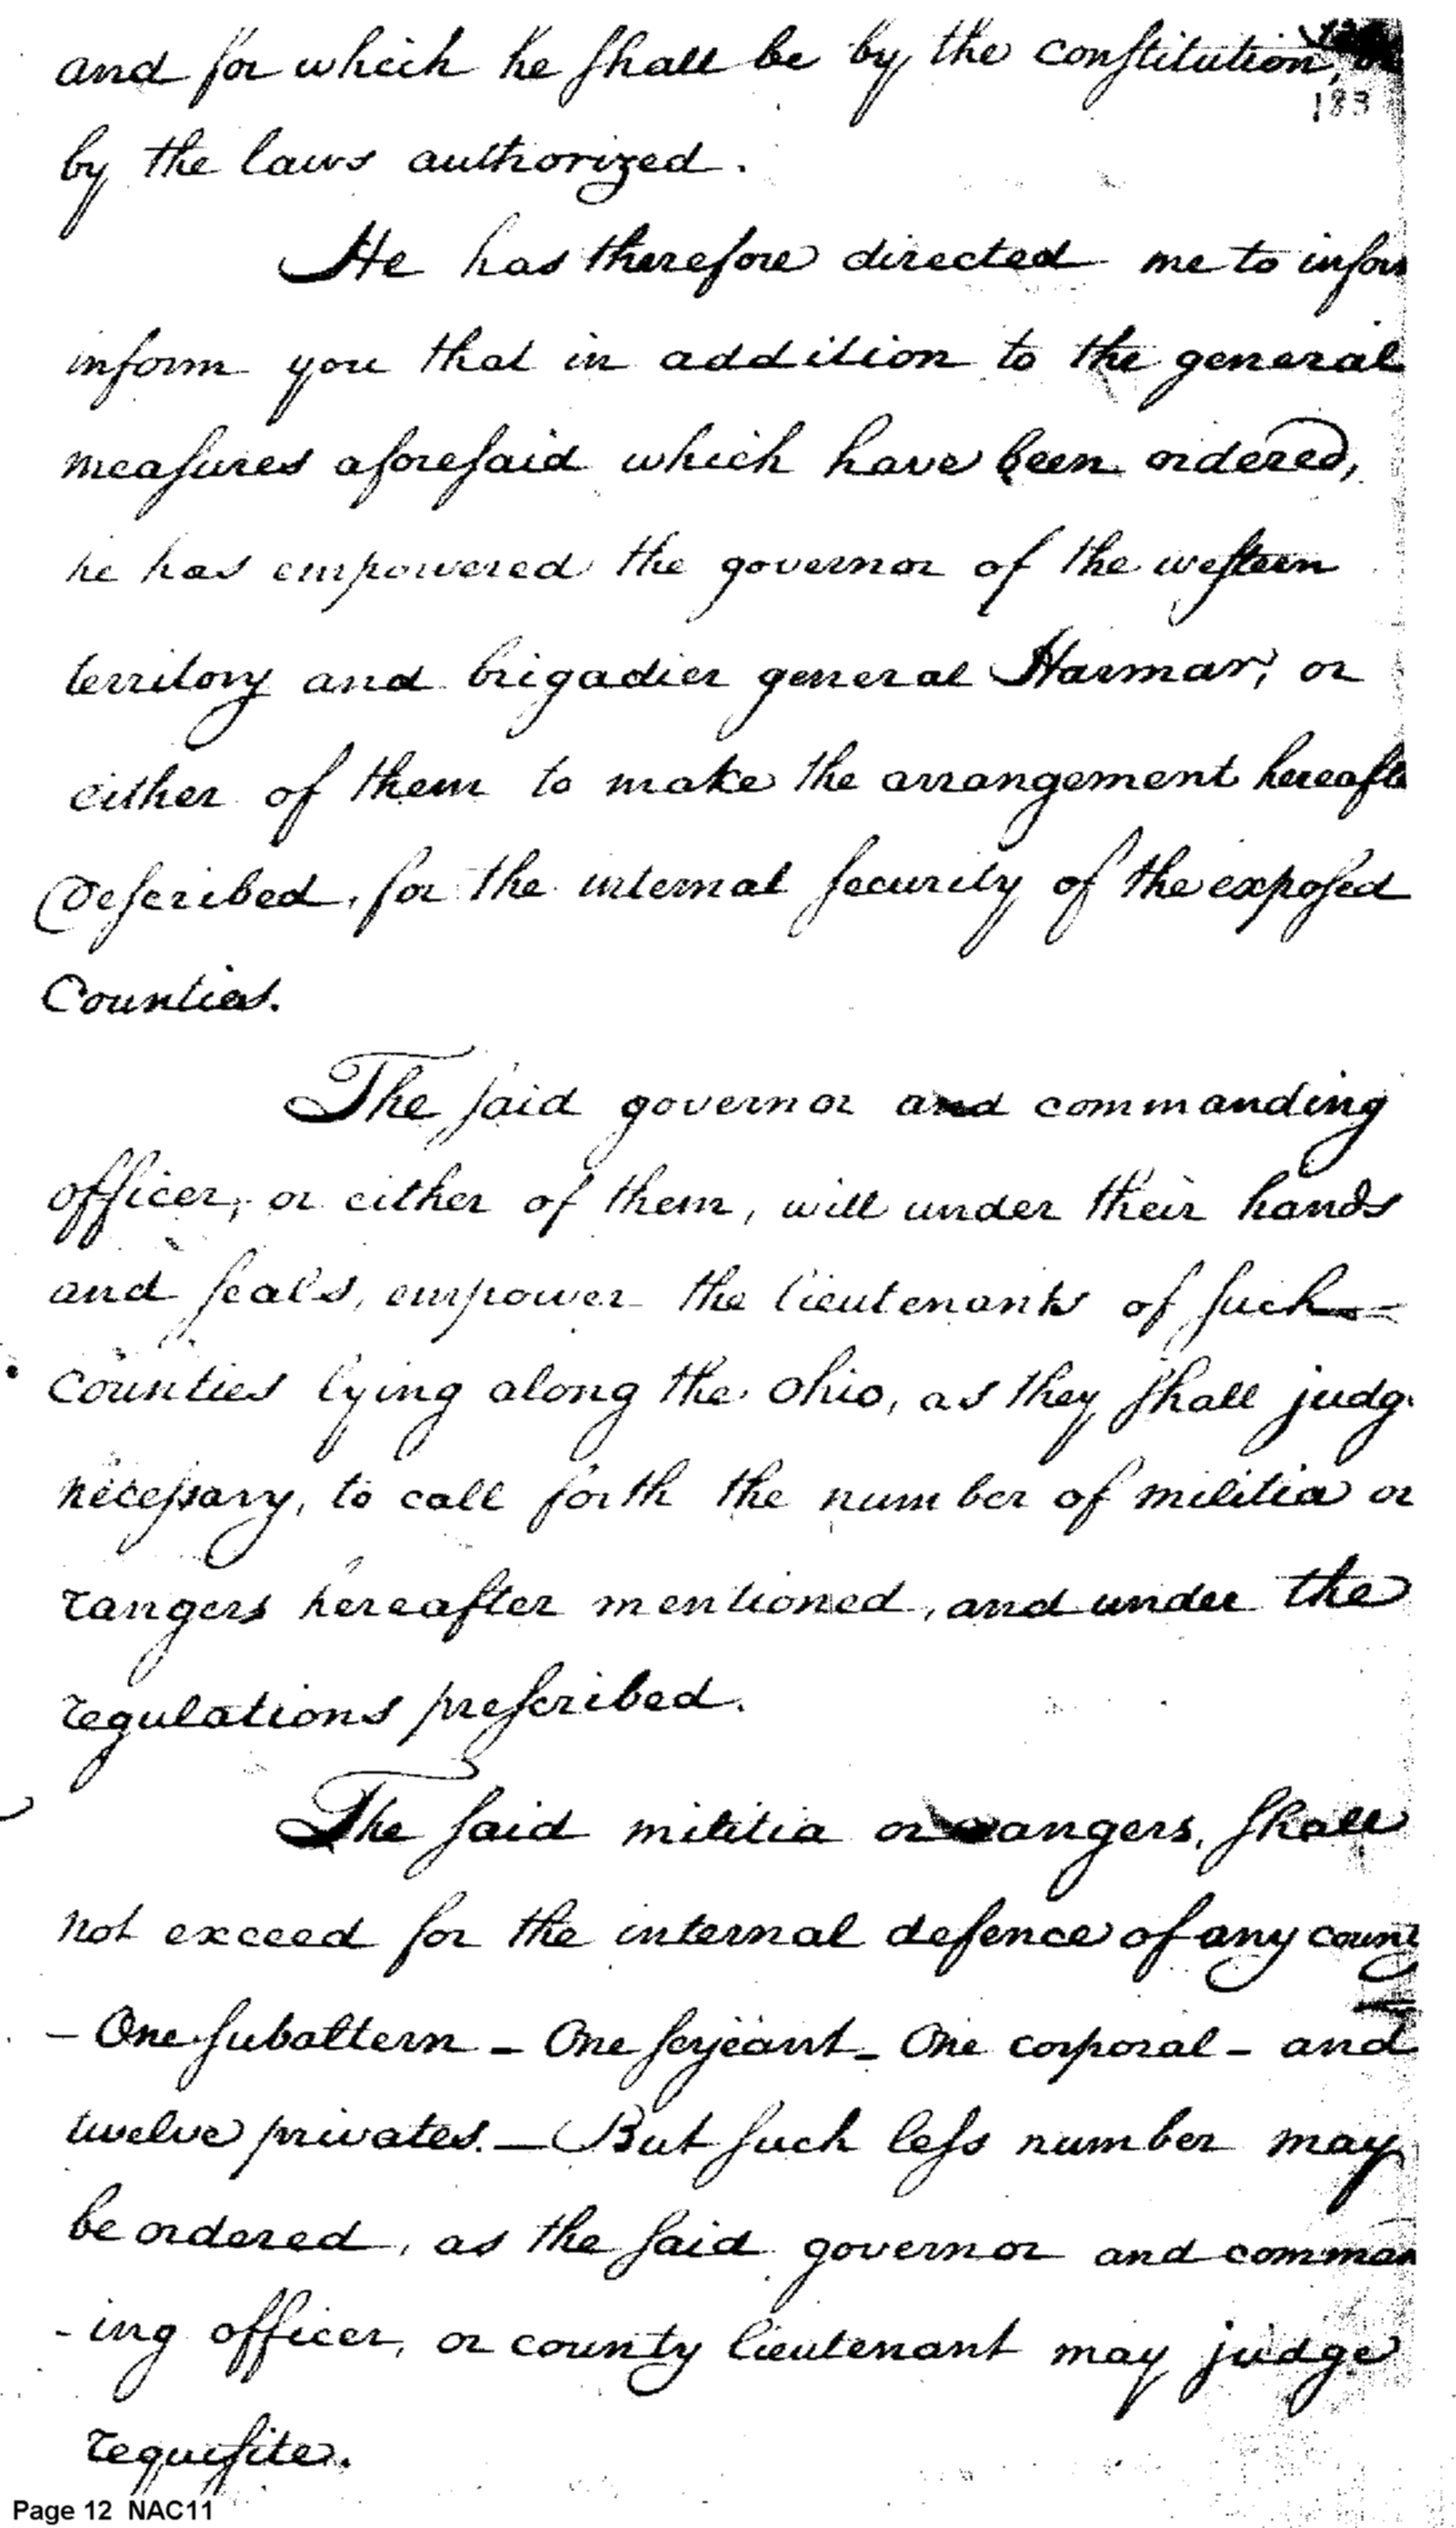 and for which he shall be by the constitution, or
183
by the laws authorized.
He has therefore directed me to infor
inform you that in addition to the general
measures aforesaid which have been ordered,
he has empowered the governor of the western
territory and brigadier general Harmar, or
either of them to make the arrangement hereafte
described, for the internal security of the exposed
Counties.
The said governor and commanding
officer, or either of them, will under their hands
and seals, empower the lieutenants of such
Counties lying along the Ohio, as they shall judg
necessary, to call forth the number of militia or
rangers hereafter mentioned, and under the
regulations prescribed.
The said militia or rangers, shall
not exceed for the internal defence of any county
- One subaltern - One serjeant - One corporal - and
twelve privates. - But such less number may
be ordered, as the said governor and comman
-ing officer, or county lieutenant may judge
requisite.
Page 12 NAC11